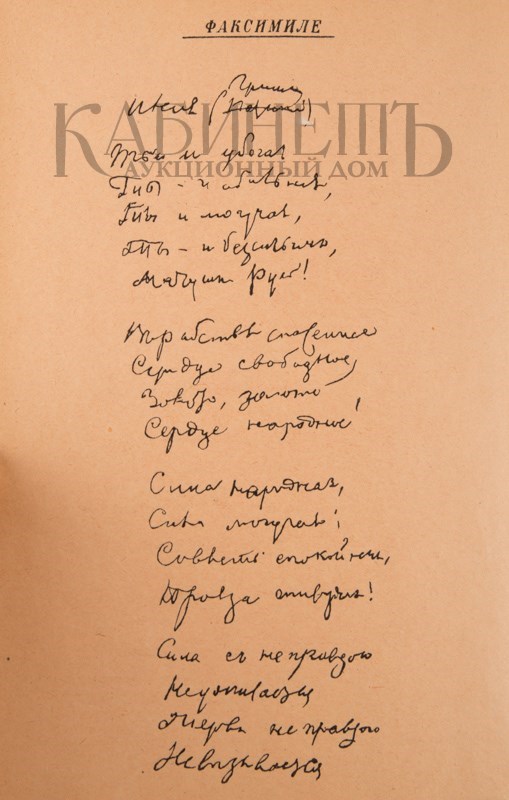 ФАКСИМИЛЕ
Гриши
КАБИНЕТЪ
АУКЦИОННЫЙ ДОМ
Ты и убогая
Ты - и обильная,
Ты и могучая,
Ты - и безсильная,
Матушка Русь!
Въ рабствѣ спасенное
Сердце свободное,
Золото, золото
Сердце народное!
Сила народная,
Сила могучая!
Совѣсть спокойная,
Правда живучая!
Сила съ неправдою
Неуживается
Жертва неправдою
Невызывается